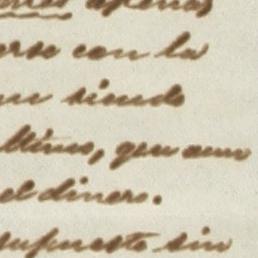 apenas
erse con la
siendo
ltimo, que aun
el dinero.
supuesto sin